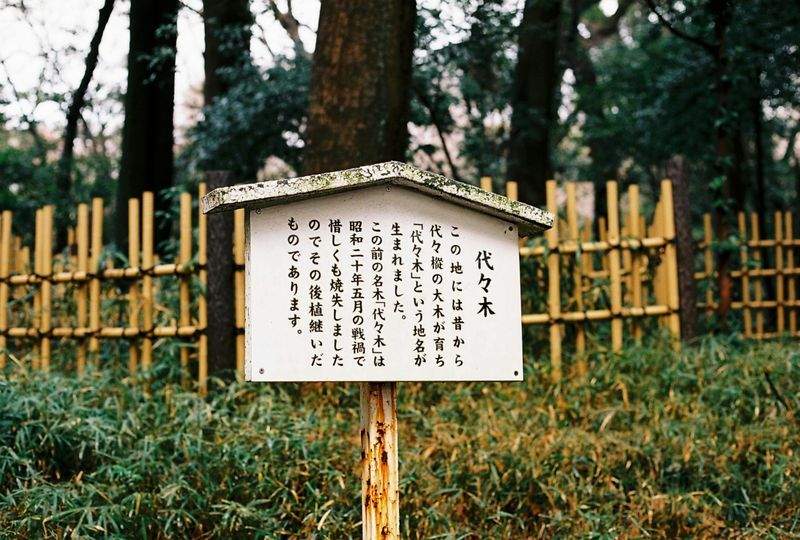 代々木
この地には昔から
代々樅の大木が育ち
「代々木」という地名が
生まれました。
この前の名木「代々木」は
昭和二十年五月の戦禍で
惜しくも焼失しました
のでその後植継いだ
ものであります。